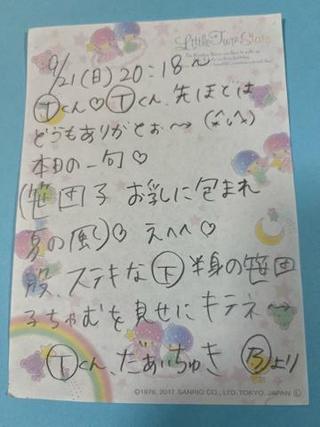 Little Twin Stars
9/21(日)20:18ん
Ⓣくん♡Ⓣくん、先ほどは
どうもありがとぉ〜(^^)
本日の一句♡
(笹団子 お乳に包まれ
夏の風)♡ えへへ♡
殿、ステキな下半身の笹団
子ちゃむを見せにキテネ〜
Ⓣくん、だぁいちゅき Ⓑより
©1976, 2017 SANRIO CO., LTD. TOKYO, JAPAN Ⓛ